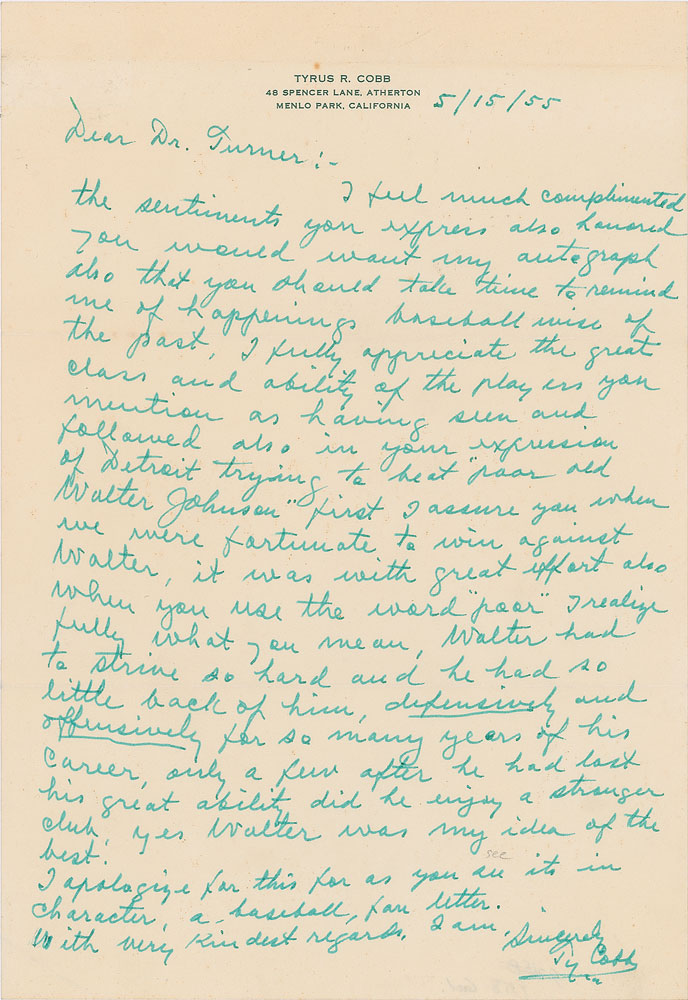 TYRUS R. COBB
48 SPENCER LANE, ATHERTON
MENLO PARK, CALIFORNIA
5/15/55
Dear Dr. Turner:-
I feel much complimented
the sentiments you express also honored
you would want my autograph
also that you should take time to remind
me of happenings baseball wise of
the past, I fully appreciate the great
class and ability of the players you
mention as having seen and
followed also in your expression
of Detroit trying to beat "poor old
Walter Johnson" first I assure you when
we were fortunate to win against
Walter, it was with great effort also
when you use the word "poor" I realize
fully what you mean, Walter had
to strive so hard and he had so
little back of him, defensively and
offensively for so many years of his
career, only a few after he had lost
his great ability did he enjoy a stronger
club, yes Walter was my idea of the
best.
see
I apologize for this for as you see its in
character, a baseball, fan letter.
With very kindest regards, I am,
Sincerely
Ty Cobb